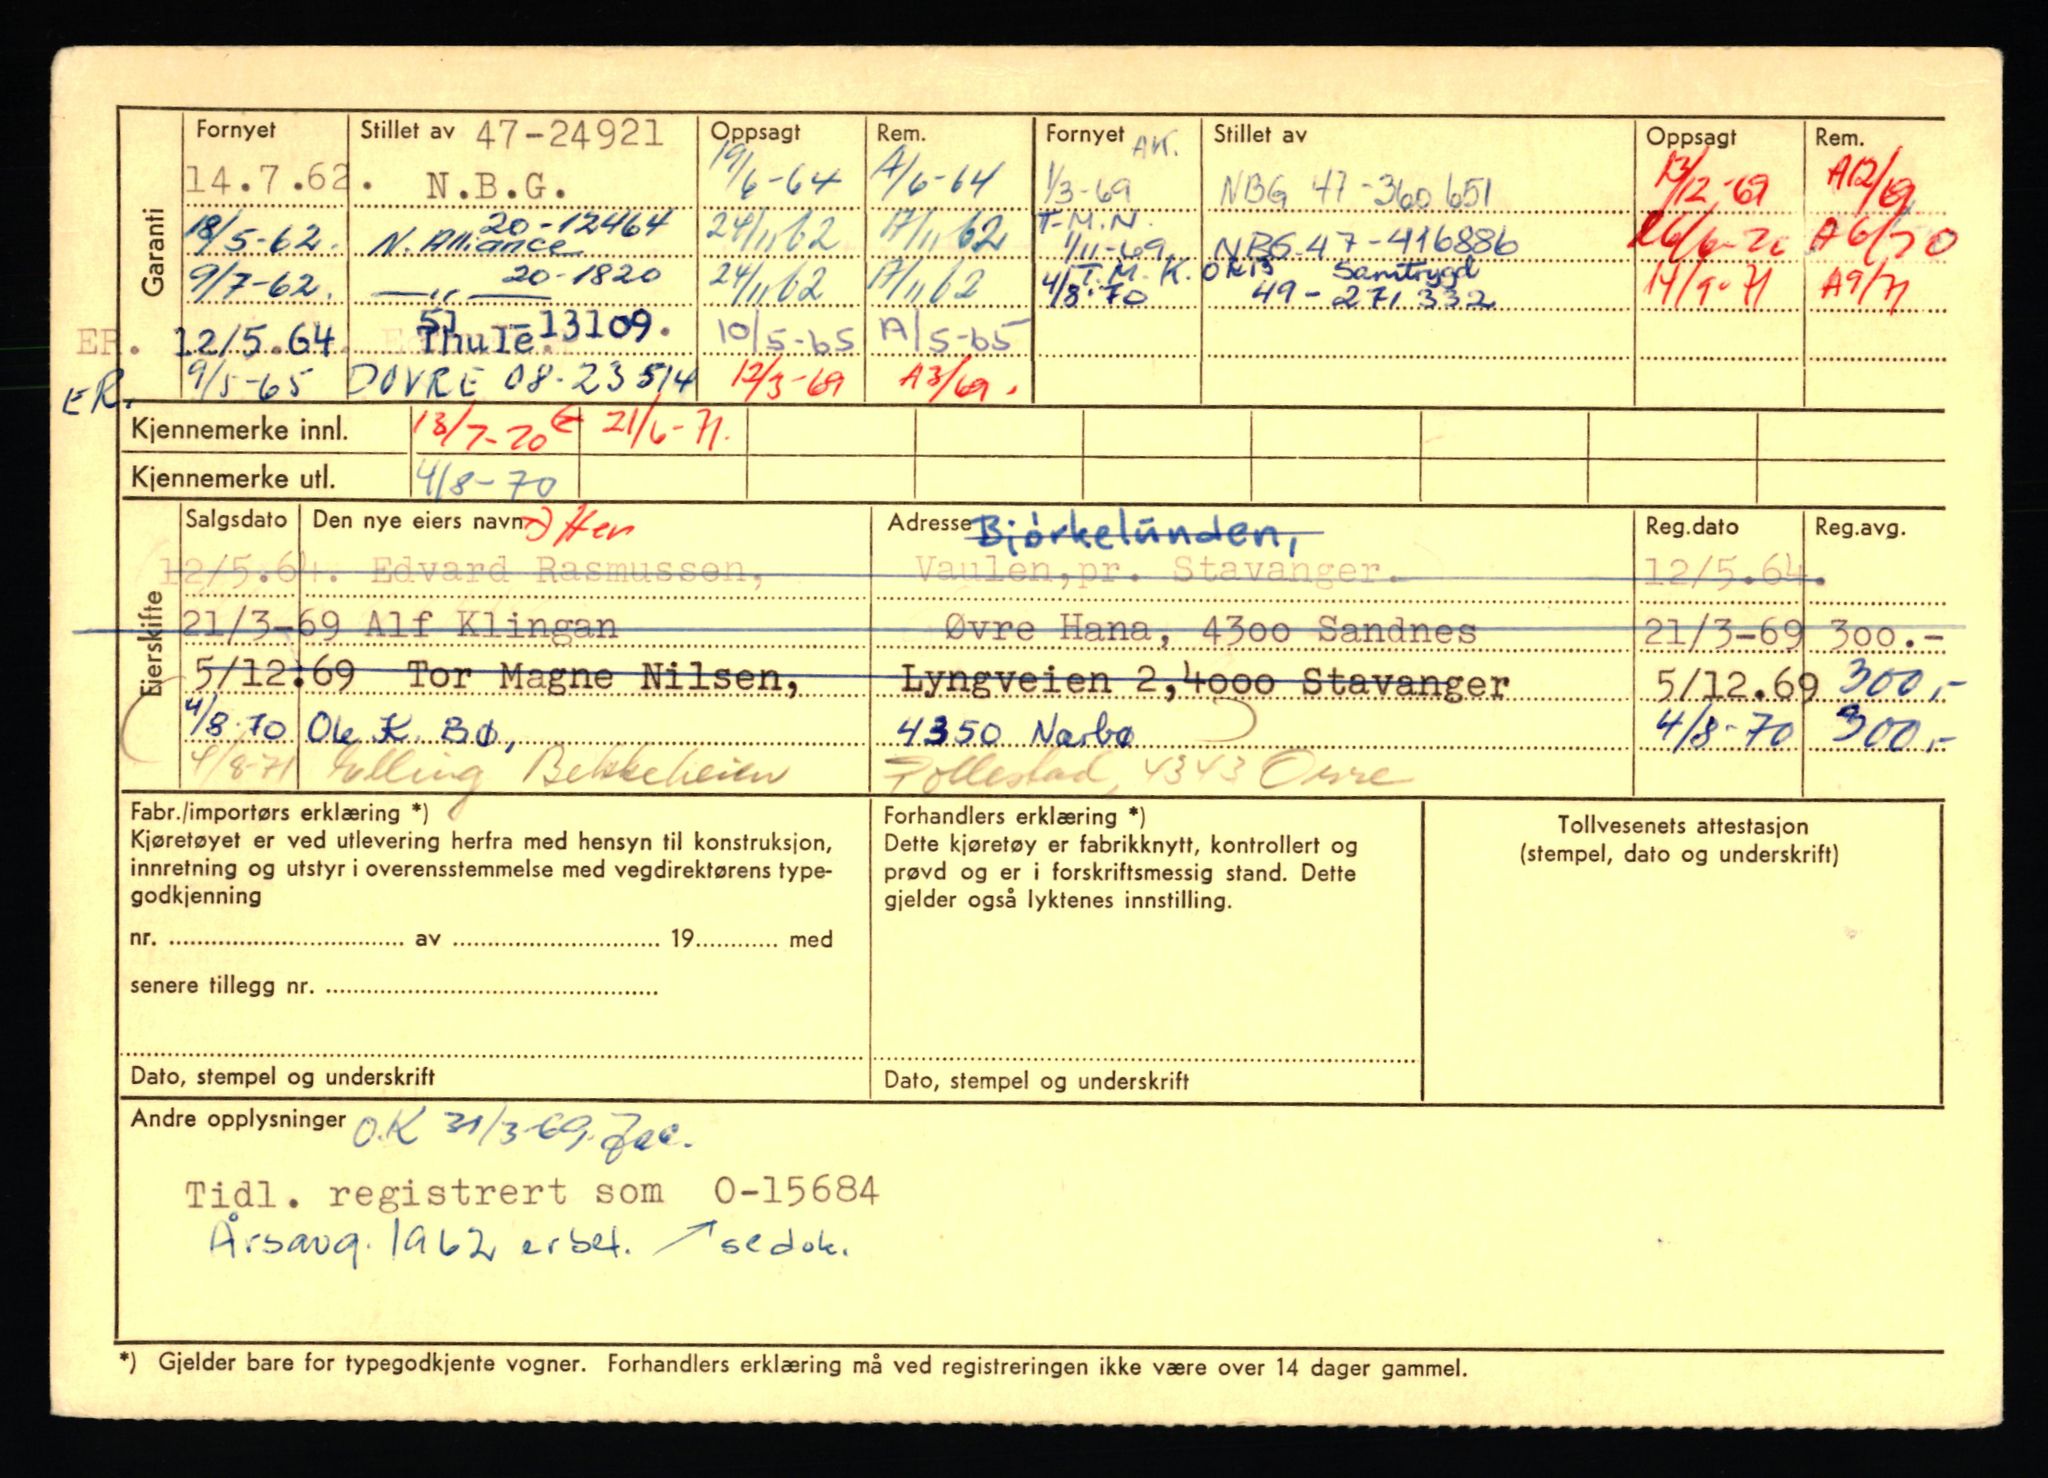 Garanti
Fornyet Stillet av 47-24921 Oppsagt Rem. Fornyet AK. Stillet av Oppsagt Rem.
14.7.62. N.B.G. 19/6-64 A/6-64 1/3-69 NBG 47-360651 13/12-69 A12/69
20-12464 T.M.N.
18/5-62. N. Alliance 24/11 62 17/11 62 1/11-69 NBG.47-416886 26/6-70 A6/70
20-1820 T.M.K. OKB Samtrygd
9/7-62. —„— 24/11 62 17/11 62 4/8-70 49-271332 14/9-71 A9/71
51 - 13109.
ER. 12/5.64. Thule 10/5-65 A/5-65
ER. 9/5-65 DOVRE 08-23514 12/3-69 A3/69.
Kjennemerke innl. 13/7-70 21/6-71.
Kjennemerke utl. 4/8-70
Eierskifte
Salgsdato Den nye eiers navn Adresse Bjørkelunden, Reg.dato Reg.avg.
12/5.64. Edvard Rasmussen, Vaulen,pr. Stavanger. 12/5.64.
21/3-69 Alf Klingan Øvre Hana, 4300 Sandnes 21/3-69 300.-
5/12.69 Tor Magne Nilsen, Lyngveien 2,4000 Stavanger 5/12.69 300,-
4/8-70 Ole K. Bø, 4350 Nærbø 4/8-70 300,-
4/8-71 Elling Bekkeheien Pollestad, 4343 Orre
Fabr./importørs erklæring *)
Kjøretøyet er ved utlevering herfra med hensyn til konstruksjon,
innretning og utstyr i overensstemmelse med vegdirektørens type-
godkjenning
nr. ........ av ........ 19........ med
senere tillegg nr. ........
Dato, stempel og underskrift
Forhandlers erklæring *)
Dette kjøretøy er fabrikknytt, kontrollert og
prøvd og er i forskriftsmessig stand. Dette
gjelder også lyktenes innstilling.
Dato, stempel og underskrift
Tollvesenets attestasjon
(stempel, dato og underskrift)
Andre opplysninger O.K 31/3-69.
Tidl. registrert som O-15684
Årsavg. 1962 er bet. ↗ se dok.
*) Gjelder bare for typegodkjente vogner. Forhandlers erklæring må ved registreringen ikke være over 14 dager gammel.